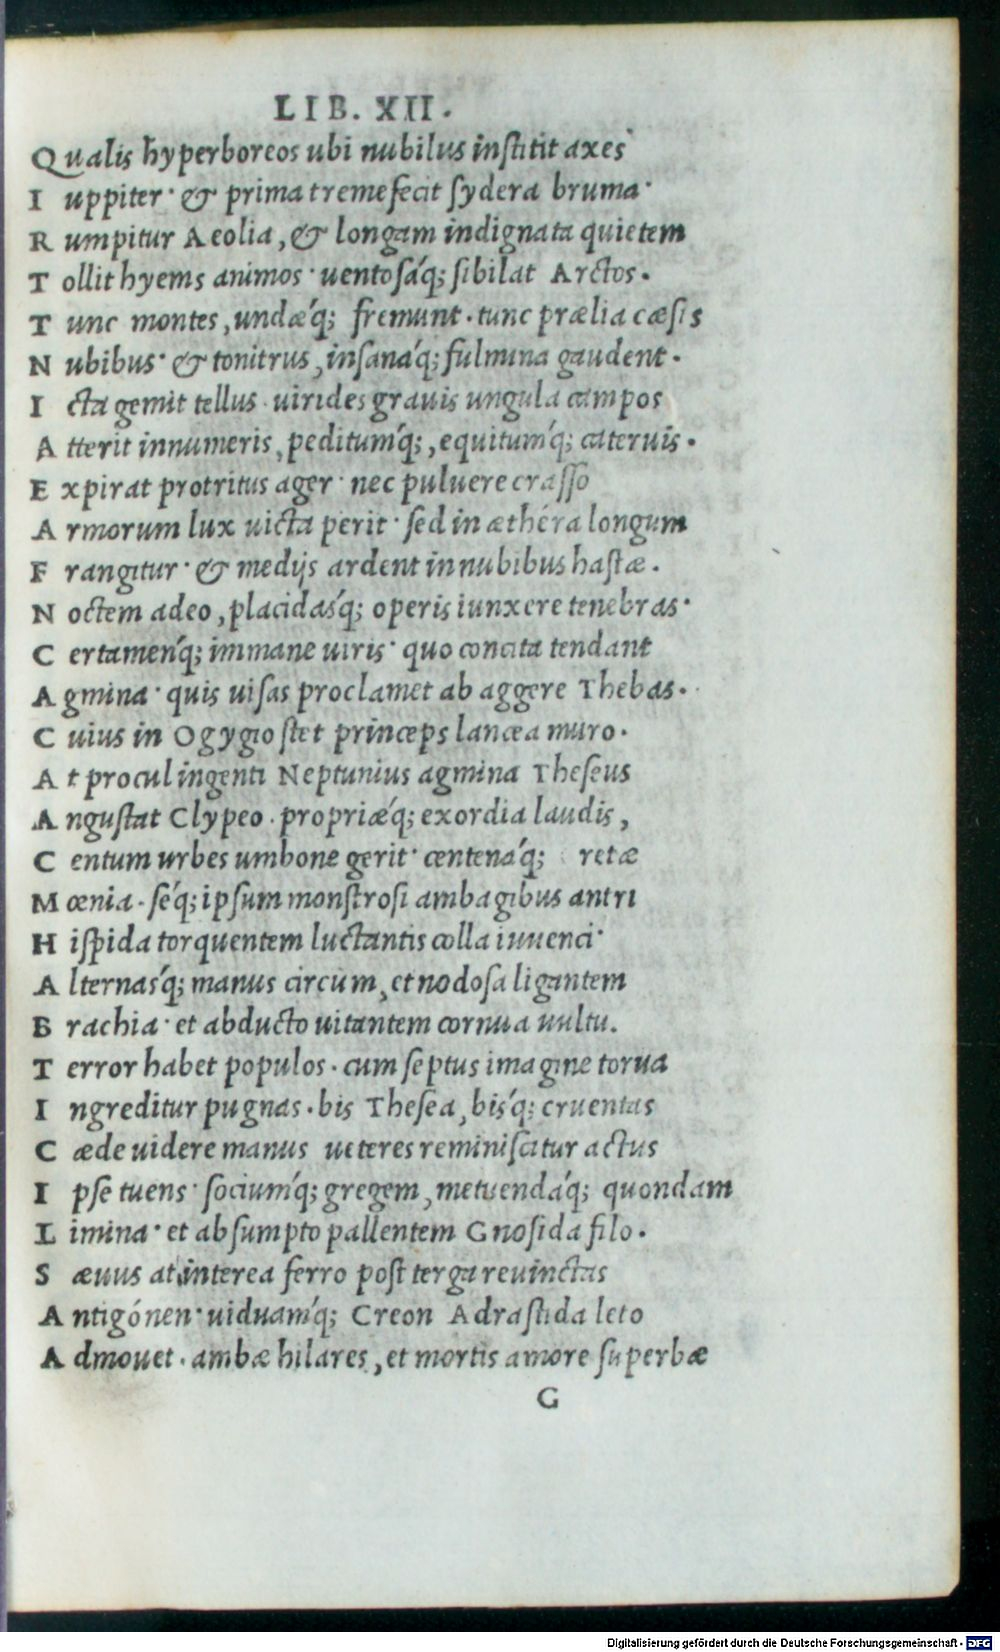 LIB. XII.
Qualis hyperboreos ubi nubilus institit axes
Iuppiter· & prima tremefecit sydera bruma·
Rumpitur Aeolia, & longam indignata quietem
Tollit hyems animos· uentosáq; sibilat Arctos.
Tunc montes, undǽq; fremunt. tunc prælia cæsis
Nubibus· & tonitrus, insanáq; fulmina gaudent.
Icta gemit tellus. uirides grauis ungula campos
Atterit innumeris, pedituḿq;, equituḿq; cateruis.
Expirat protritus ager· nec puluere crasso
Armorum lux uicta perit· sed in æthéra longum
Frangitur· & medijs ardent in nubibus hastæ.
Noctem adeo, placidaśq; operis iunxere tenebras·
Certameńq; immane uiris· quo concita tendant
Agmina· quis uisas proclamet ab aggere Thebas.
Cuius in Ogygio stet princeps lancea muro.
At procul ingenti Neptunius agmina Theseus
Angustat Clypeo. propriǽq; exordia laudis,
Centum urbes umbone gerit· centenáq; retæ
Moenia. séq; ipsum monstrosi ambagibus antri
Hispida torquentem luctantis colla iuuenci·
Alternaśq; manus circum, et nodosa ligantem
Brachia· et abducto uitantem cornua uultu.
Terror habet populos. cum septus imagine torua
Ingreditur pugnas. bis Thesea, biśq; cruentas
Cæde uidere manus ueteres reminiscitur actus
Ipse tuens· sociuḿq; gregem, metuendáq; quondam
Limina· et absumpto pallentem Gnosida filo.
Sæuus at interea ferro post terga reuinctas
Antigónen· uiduaḿq; Creon Adrastida leto
Admouet. ambæ hilares, et mortis amore superbæ
G
Digitalisierung gefördert durch die Deutsche Forschungsgemeinschaft - DFG